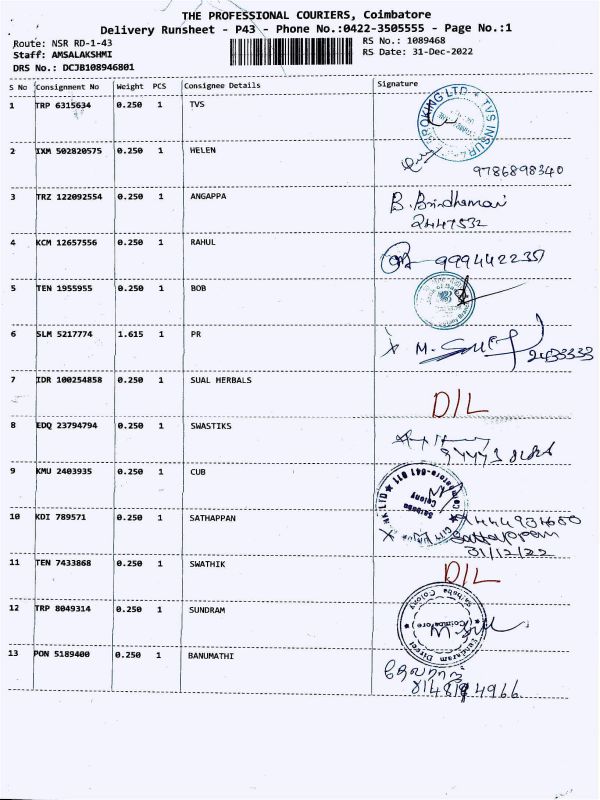 THE PROFESSIONAL COURIERS, Coimbatore
Delivery Runsheet - P43 - Phone No.:0422-3505555 - Page No.:1
Route: NSR RD-1-43
RS No.: 1089468
Staff: AMSALAKSHMI
RS Date: 31-Dec-2022
DRS No.: DCJB108946801
S No Consignment No Weight PCS Consignee Details Signature
1 TRP 6315634 0.250 1 TVS
2 IXM 502820575 0.250 1 HELEN
9786898340
3 TRZ 122092554 0.250 1 ANGAPPA B.
2447532
4 KCM 12657556 0.250 1 RAHUL
5 TEN 1955955 0.250 1 BOB
6 SLM 5217774 1.615 1 PR M.
2433333
7 IDR 100254858 0.250 1 SUAL HERBALS
D/L
8 EDQ 23794794 0.250 1 SWASTIKS
9 KMU 2403935 0.250 1 CUB
10 KDI 789571 0.250 1 SATHAPPAN
31/12/22
11 TEN 7433868 0.250 1 SWATHIK D/L
12 TRP 8049314 0.250 1 SUNDRAM
13 PON 5189400 0.250 1 BANUMATHI